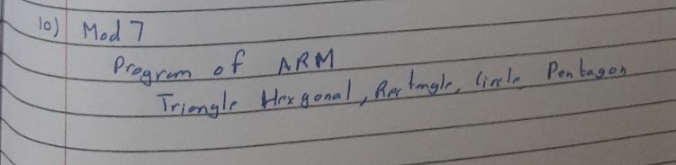 10) Mod 7
Program of ARM
Triangle Hexgonal, Rectangle, Circle, Pentagon